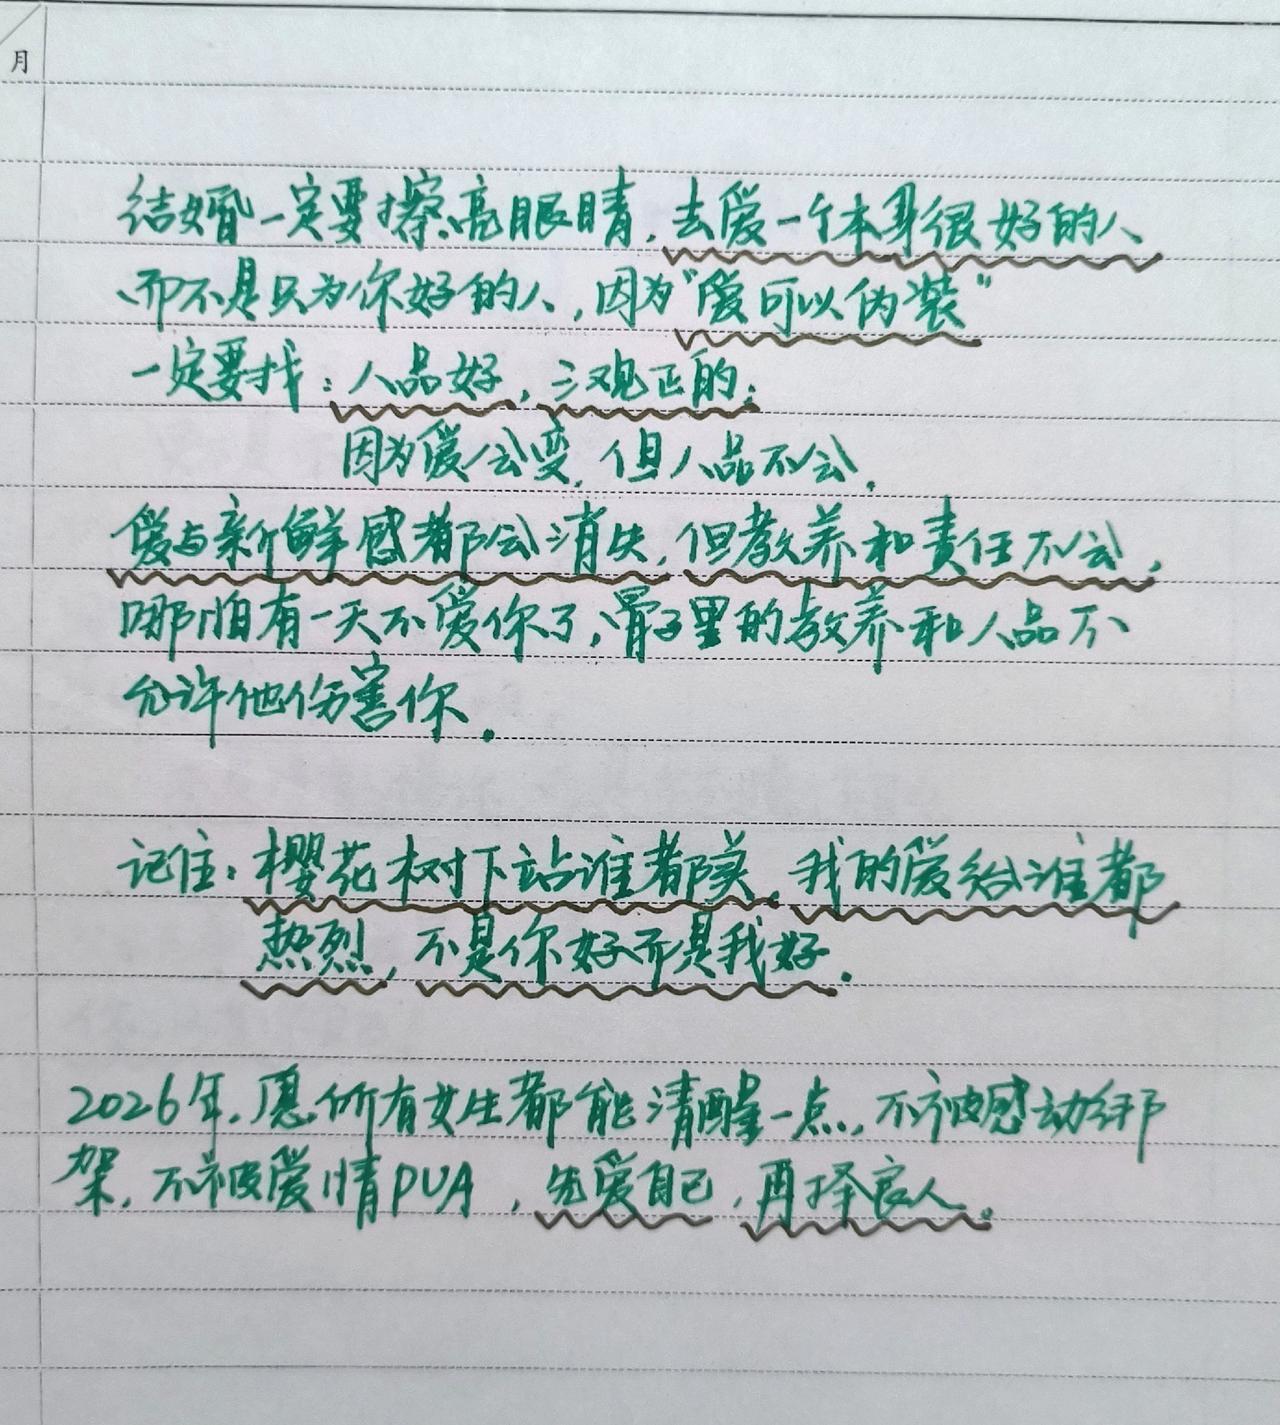 月
结婚一定要擦亮眼睛,去爱一个本身很好的人
而不是只为你好的人,因为“爱可以伪装”
一定要找:人品好,三观正的;
因为爱会变,但人品不会,
爱与新鲜感都会消失,但教养和责任不会,
哪怕有一天不爱你了,骨子里的教养和人品不
允许他伤害你.
记住:樱花树下站谁都美,我的爱给谁都
热烈,不是你好而是我好.
2026年,愿所有女生都能清醒一点,不被感动绑
架,不被爱情PUA,先爱自己,再择良人。